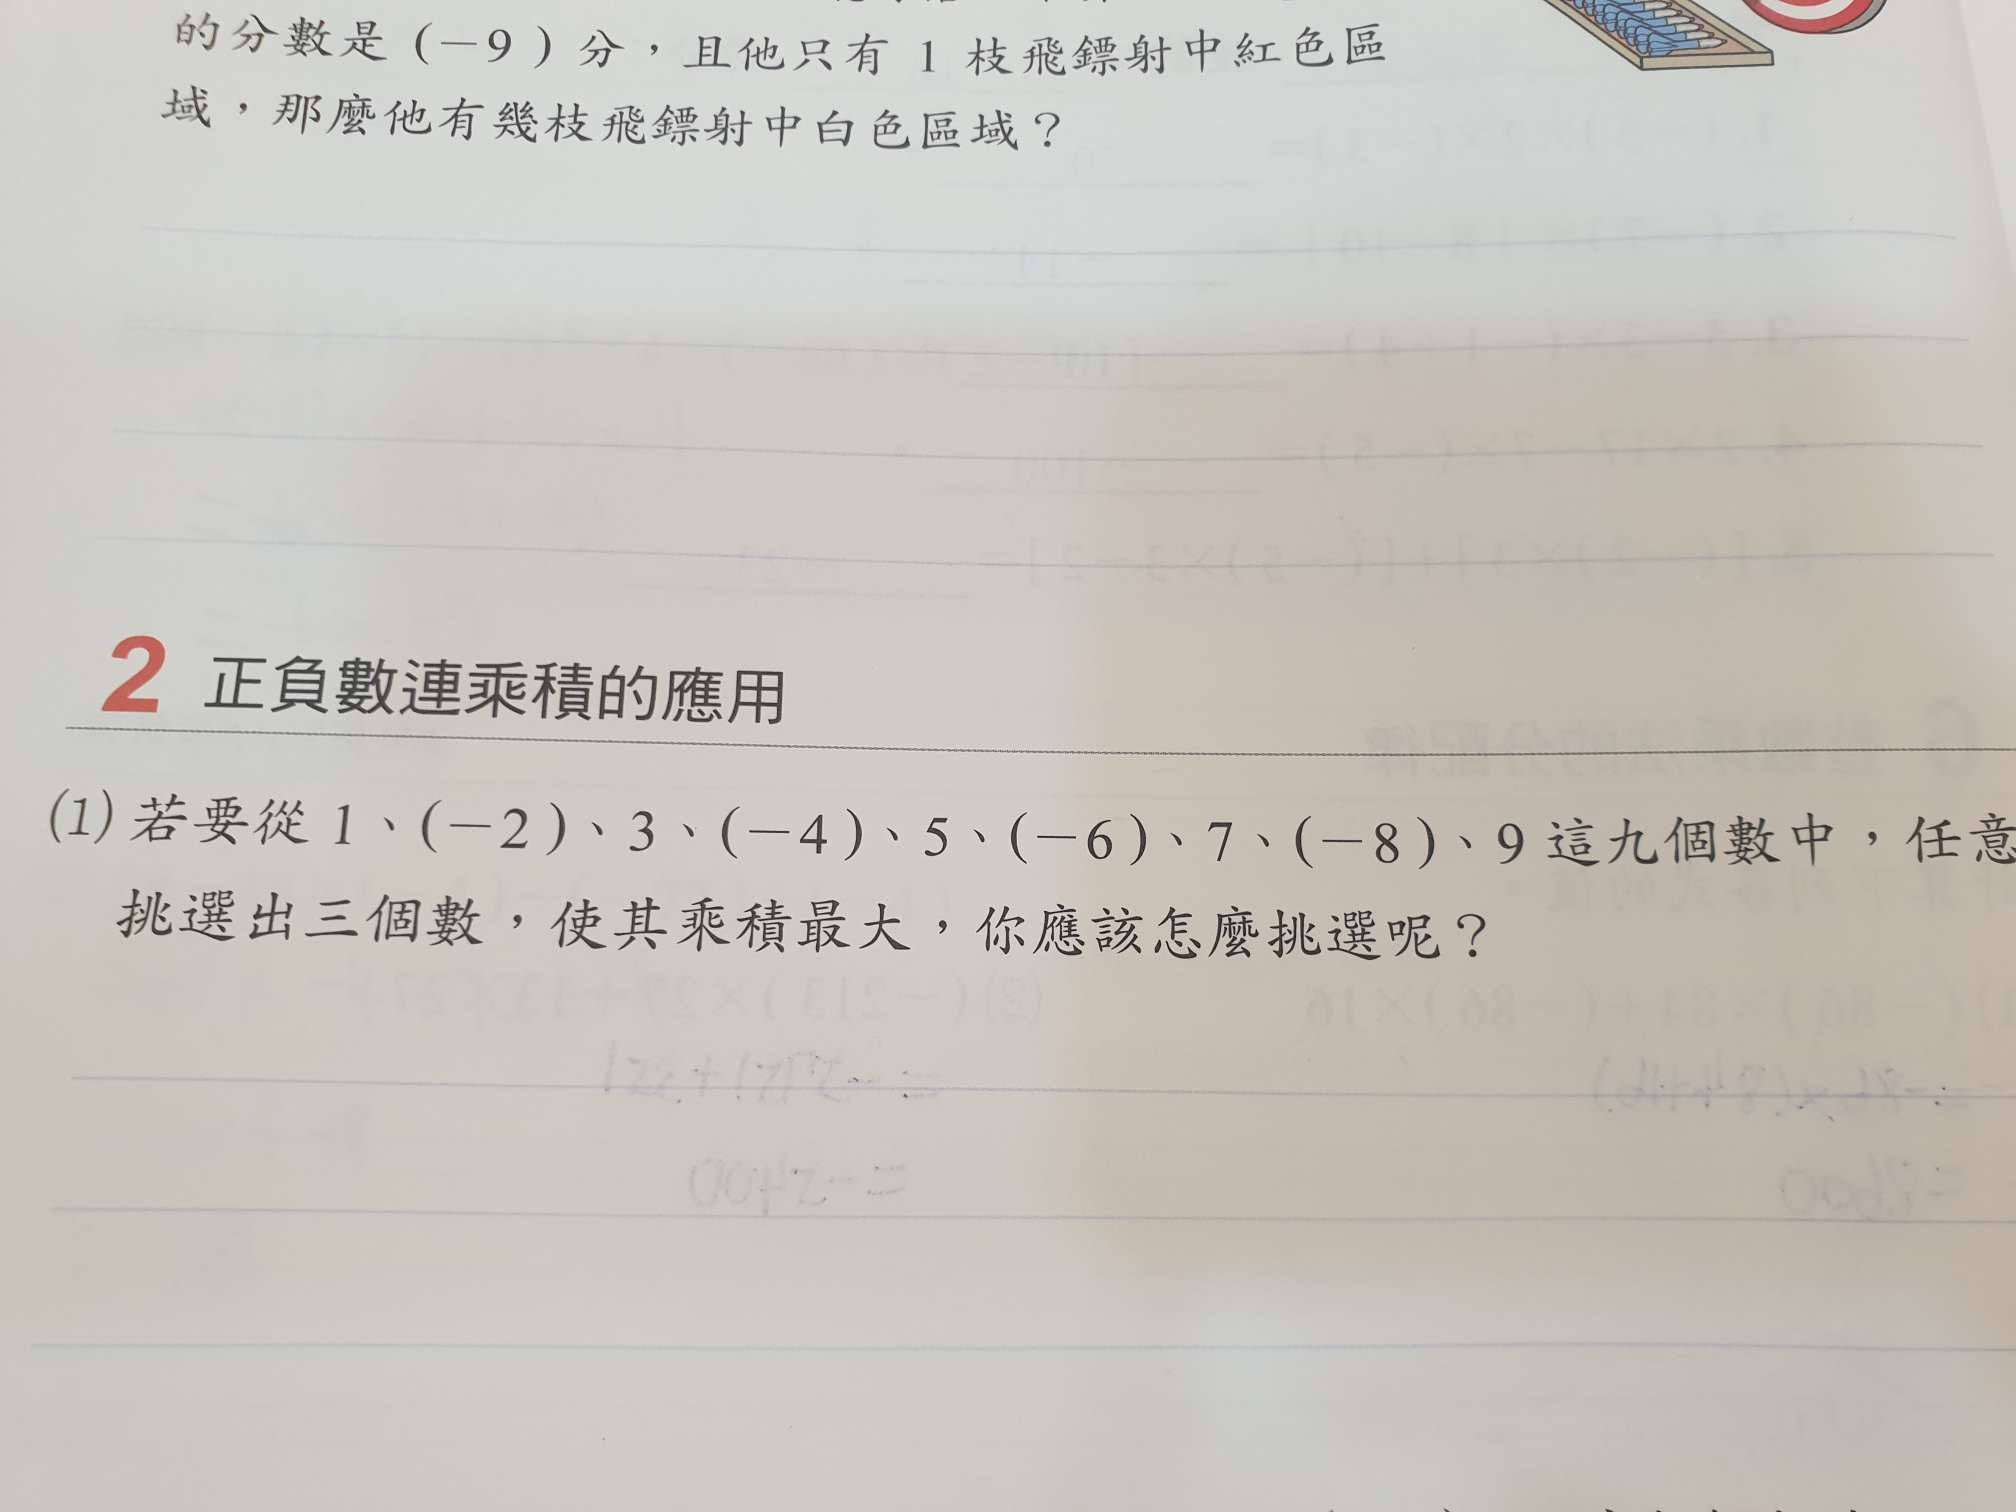 的分數是 (－9 ) 分，且他只有 1 枝飛鏢射中紅色區
域，那麼他有幾枝飛鏢射中白色區域？
2 正負數連乘積的應用
(1) 若要從 1、(－2 )、3、(－4 )、5、(－6 )、7、(－8 )、9 這九個數中，任意
挑選出三個數，使其乘積最大，你應該怎麼挑選呢？